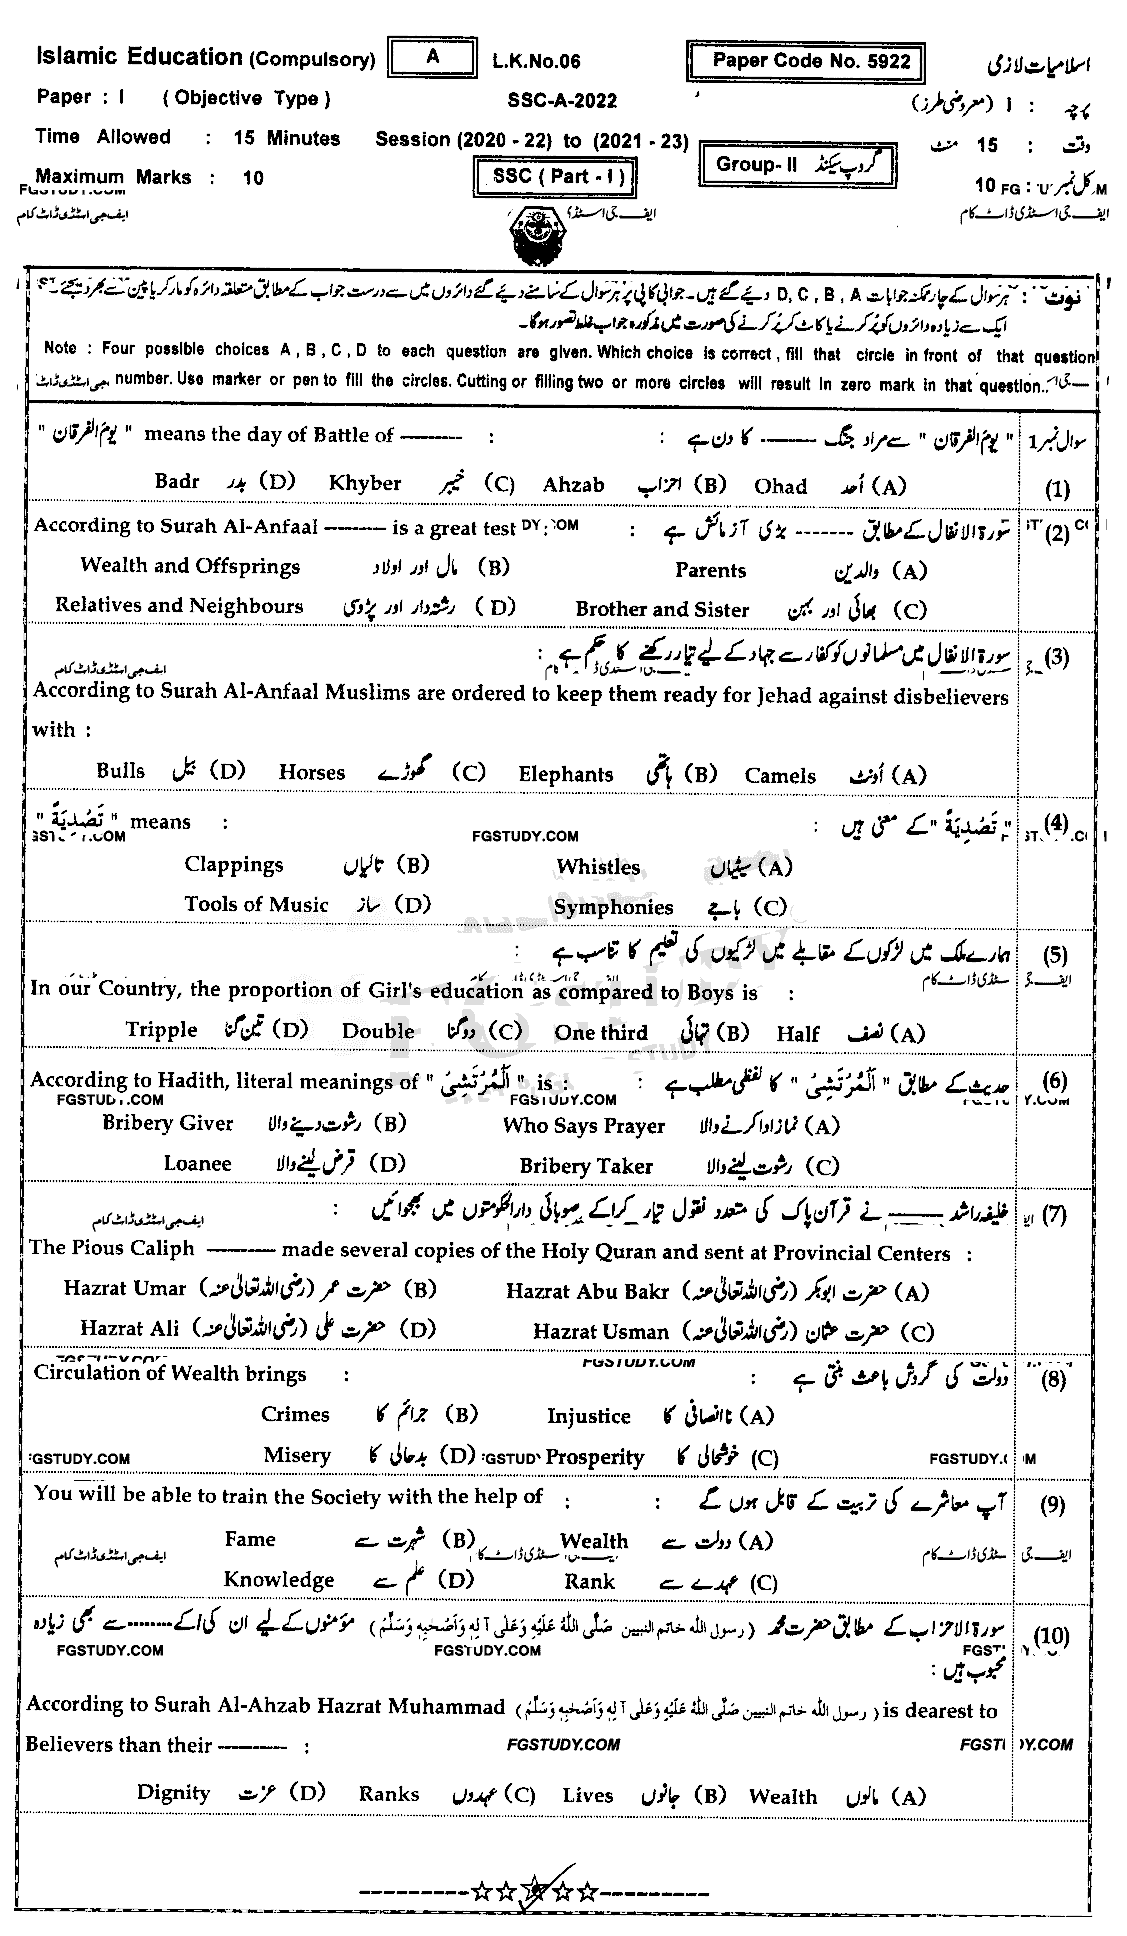 Islamic Education (Compulsory) A L.K.No.06 Paper Code No. 5922 اسلامیات لازمی
Paper : I ( Objective Type ) SSC-A-2022 پرچہ : I (معروضی طرز)
Time Allowed : 15 Minutes Session (2020 - 22) to (2021 - 23) وقت : 15 منٹ
Maximum Marks : 10 SSC ( Part - I ) Group- II گروپ سیکنڈ کل نمبر : 10
FGSTUDY.COM
ایف جی اسٹڈی ڈاٹ کام ایف جی اسٹڈی ایف جی اسٹڈی ڈاٹ کام
نوٹ : ہر سوال کے چار ممکنہ جوابات D, C, B, A دیئے گئے ہیں۔ جوابی کاپی پر ہر سوال کے سامنے دیئے گئے دائروں میں سے درست جواب کے مطابق متعلقہ دائرہ کو مارکر یا پین سے بھر دیجئے۔
ایک سے زیادہ دائروں کو پُر کرنے یا کاٹ کر پُر کرنے کی صورت میں مذکورہ جواب غلط تصور ہوگا۔
Note : Four possible choices A , B , C , D to each question are given. Which choice is correct , fill that circle in front of that question
number. Use marker or pen to fill the circles. Cutting or filling two or more circles will result in zero mark in that question.
" یوم الفرقان " means the day of Battle of -------- : " یوم الفرقان " سے مراد جنگ -------- کا دن ہے : سوال نمبر 1
(1) (A) اُحد Ohad (B) احزاب Ahzab (C) خیبر Khyber (D) بدر Badr
According to Surah Al-Anfaal -------- is a great test : سورۃ الانفال کے مطابق -------- بڑی آزمائش ہے : (2)
(A) والدین Parents (B) مال اور اولاد Wealth and Offsprings
(C) بھائی اور بہن Brother and Sister (D) رشتہ دار اور پڑوسی Relatives and Neighbours
سورۃ الانفال میں مسلمانوں کو کفار سے جہاد کے لیے تیار رکھنے کا حکم ہے : (3)
ایف جی اسٹڈی ڈاٹ کام
According to Surah Al-Anfaal Muslims are ordered to keep them ready for Jehad against disbelievers
with :
(A) اُونٹ Camels (B) ہاتھی Elephants (C) گھوڑے Horses (D) بیل Bulls
" تَصْدِيَةً " means : " تَصْدِيَةً " کے معنی ہیں : (4)
FGSTUDY.COM
(A) سیٹیاں Whistles (B) تالیاں Clappings
(C) باجے Symphonies (D) ساز Tools of Music
ہمارے ملک میں لڑکوں کے مقابلے میں لڑکیوں کی تعلیم کا تناسب ہے : (5)
In our Country, the proportion of Girl's education as compared to Boys is :
(A) نصف Half (B) تہائی One third (C) دوگنا Double (D) تین گنا Tripple
According to Hadith, literal meanings of " اَلْمُرْتَشِیْ " is : حدیث کے مطابق " اَلْمُرْتَشِیْ " کا لفظی مطلب ہے : (6)
FGSTUDY.COM FGSTUDY.COM
(A) نماز ادا کرنے والا Who Says Prayer (B) رشوت دینے والا Bribery Giver
(C) رشوت لینے والا Bribery Taker (D) قرض لینے والا Loanee
خلیفہ راشد -------- نے قرآن پاک کی متعدد نقول تیار کرا کے صوبائی دارالحکومتوں میں بھجوائیں : (7)
ایف جی اسٹڈی ڈاٹ کام
The Pious Caliph -------- made several copies of the Holy Quran and sent at Provincial Centers :
(A) حضرت ابوبکر (رضی اللہ تعالیٰ عنہ) Hazrat Abu Bakr (B) حضرت عمر (رضی اللہ تعالیٰ عنہ) Hazrat Umar
(C) حضرت عثمان (رضی اللہ تعالیٰ عنہ) Hazrat Usman (D) حضرت علی (رضی اللہ تعالیٰ عنہ) Hazrat Ali
FGSTUDY.COM
Circulation of Wealth brings : دولت کی گردش باعث بنتی ہے : (8)
(A) ناانصافی کا Injustice (B) جرائم کا Crimes
(C) خوشحالی کا Prosperity (D) بدحالی کا Misery
GSTUDY.COM
You will be able to train the Society with the help of : آپ معاشرے کی تربیت کے قابل ہوں گے : (9)
(A) دولت سے Wealth (B) شہرت سے Fame
ایف جی اسٹڈی ڈاٹ کام
(C) عہدے سے Rank (D) علم سے Knowledge
سورۃ الاحزاب کے مطابق حضرت محمد (رسول اللہ خاتم النبیین صَلَّی اللہُ عَلَیْہِ وَعَلٰی آلِہٖ وَاَصْحٰبِہٖ وَسَلَّمَ) مؤمنوں کے لیے ان کی / کے -------- سے بھی زیادہ (10)
FGSTUDY.COM FGSTUDY.COM
محبوب ہیں :
According to Surah Al-Ahzab Hazrat Muhammad (رسول اللہ خاتم النبیین صَلَّی اللہُ عَلَیْہِ وَعَلٰی آلِہٖ وَاَصْحٰبِہٖ وَسَلَّمَ) is dearest to
Believers than their -------- : FGSTUDY.COM
(A) مالوں Wealth (B) جانوں Lives (C) عہدوں Ranks (D) عزت Dignity